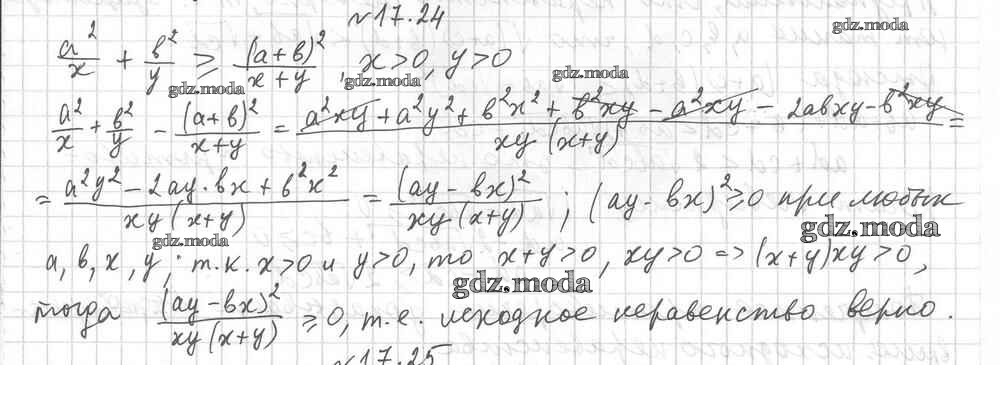 №17.24
gdz.moda
a²/x + b²/y ≥ (a+b)²/(x+y), x>0, y>0
gdz.moda gdz.moda gdz.moda
a²/x + b²/y - (a+b)²/(x+y) = (a²xy + a²y² + b²x² + b²xy - a²xy - 2abxy - b²xy)/(xy(x+y)) =
= (a²y² - 2ay·bx + b²x²)/(xy(x+y)) = (ay - bx)²/(xy(x+y)); (ay - bx)² ≥ 0 при любых
gdz.moda gdz.moda
a, b, x, y; т.к. x>0 и y>0, то x+y>0, xy>0 => (x+y)xy>0,
gdz.moda
тогда (ay - bx)²/(xy(x+y)) ≥ 0, т.е. исходное неравенство верно.
№17.25